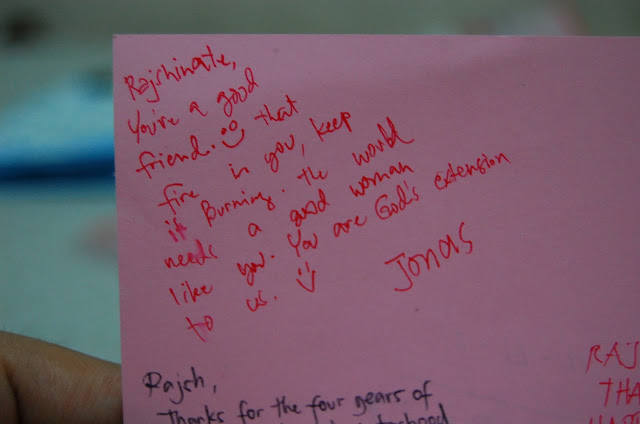 Rajshinate,
You're a good
friend. that
fire in you, keep
it Burning. the would
needs a good woman
like you. You are God's extension
to us.
Jonas
Rajsh,
Thanks for the four years of
RAJS
THA
HAPP